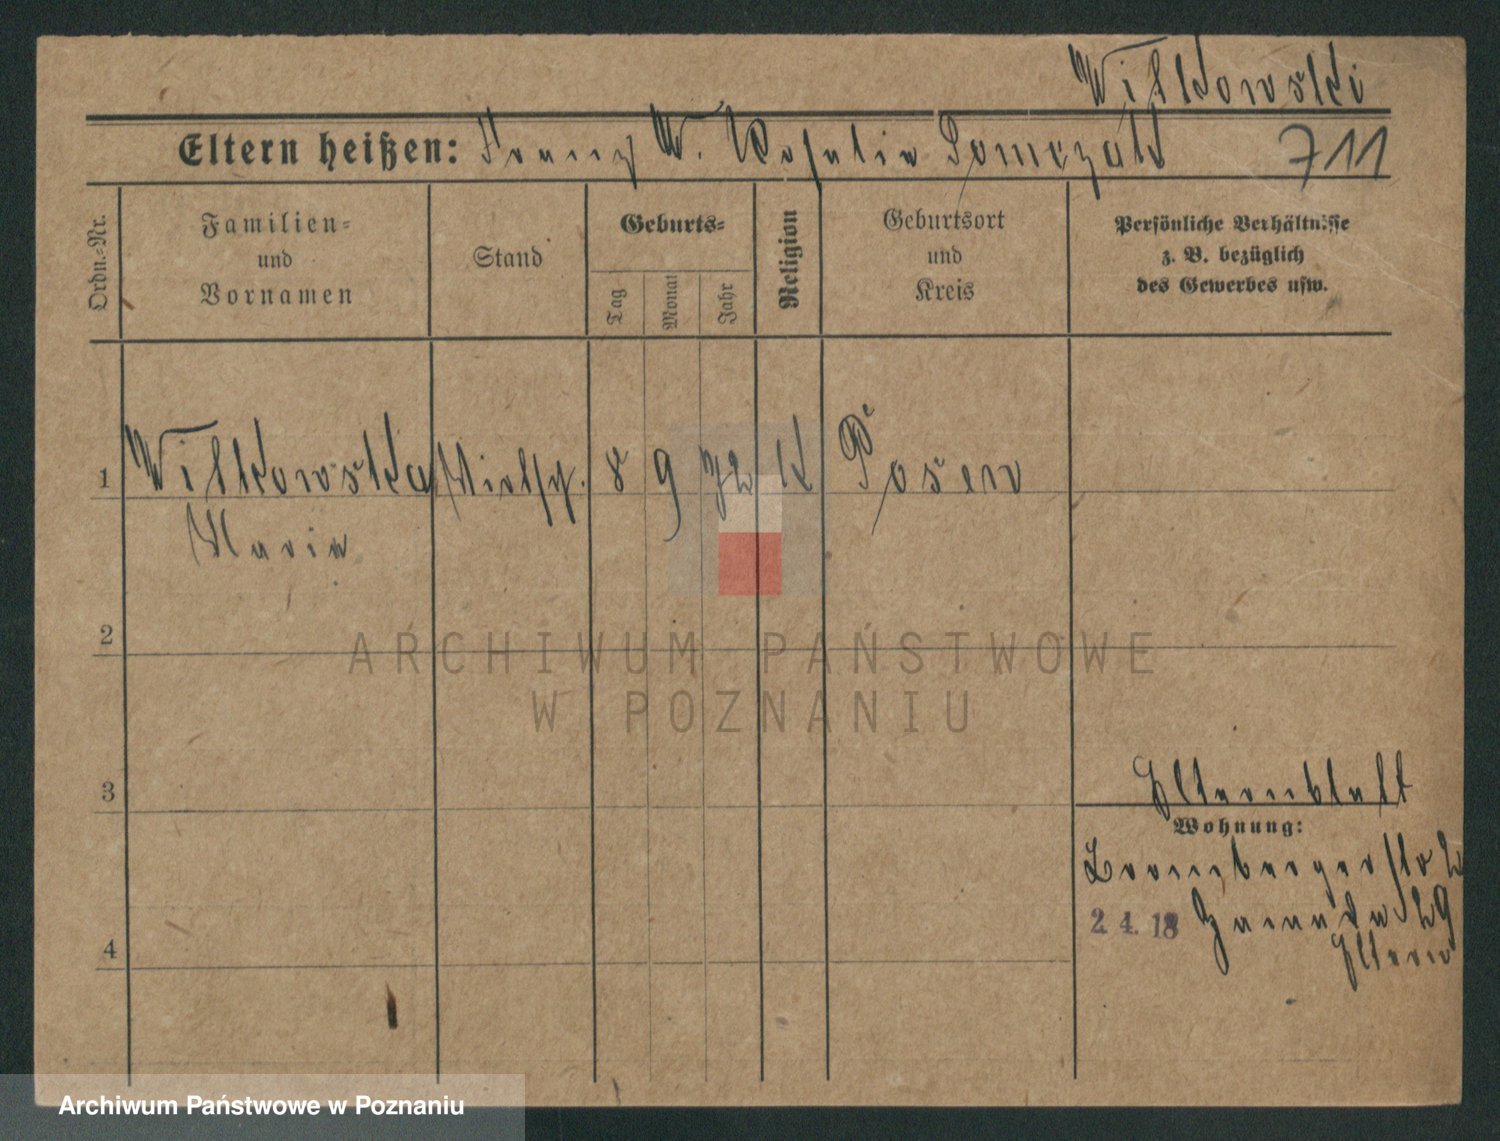 Witkowski
Eltern heißen: Franz W. Rosalia 711
Ordn.-Nr.
Familien-
und
Vornamen
Stand
Geburts-
Tag
Monat
Jahr
Religion
Geburtsort
und
Kreis
Persönliche Verhältnisse
z. B. bezüglich
des Gewerbes usw.
1 Witkowska Wirtsch. 8 9 K Posen
Maria
2
3
4
Elternblatt
Wohnung:
Brombergerstr 2
2. 4. 18 29
Eltern
ARCHIWUM PAŃSTWOWE
W POZNANIU
Archiwum Państwowe w Poznaniu